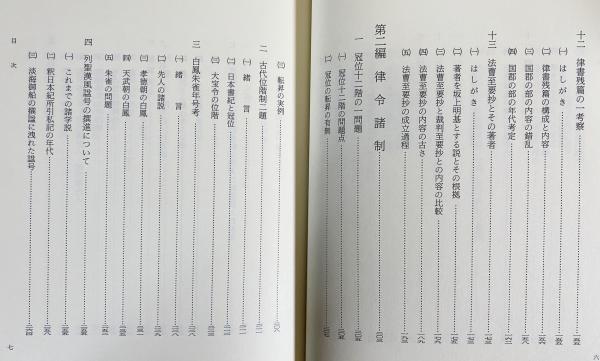 十二 律書残篇の一考察
㈠ はしがき
㈡ 律書残篇の構成と内容
㈢ 国郡の部の内容の錯乱
㈣ 国郡の部の年代考定
十三 法曹至要抄とその著者
㈠ はしがき
㈡ 著者を坂上明基とする説とその根拠
㈢ 法曹至要抄と裁判至要抄との内容の比較
㈣ 法曹至要抄の内容の古さ
㈤ 法曹至要抄の成立過程
第二編 律令諸制
一 冠位十二階の一問題
㈠ 冠位十二階の問題点
㈡ 冠位の転昇の有無
六
㈢ 転昇の実例
二 古代位階制二題
㈠ 緒言
㈡ 日本書紀と冠位
㈢ 大宝令の位階
三 白鳳朱雀年号考
㈠ 緒言
㈡ 先人の諸説
㈢ 孝徳朝の白鳳
㈣ 天武朝の白鳳
㈤ 朱雀の問題
四 列聖漢風諡号の撰進について
㈠ これまでの諸学説
㈡ 釈日本紀所引私記の年代
㈢ 淡海御船の撰諡に洩れた諡号
目次
七